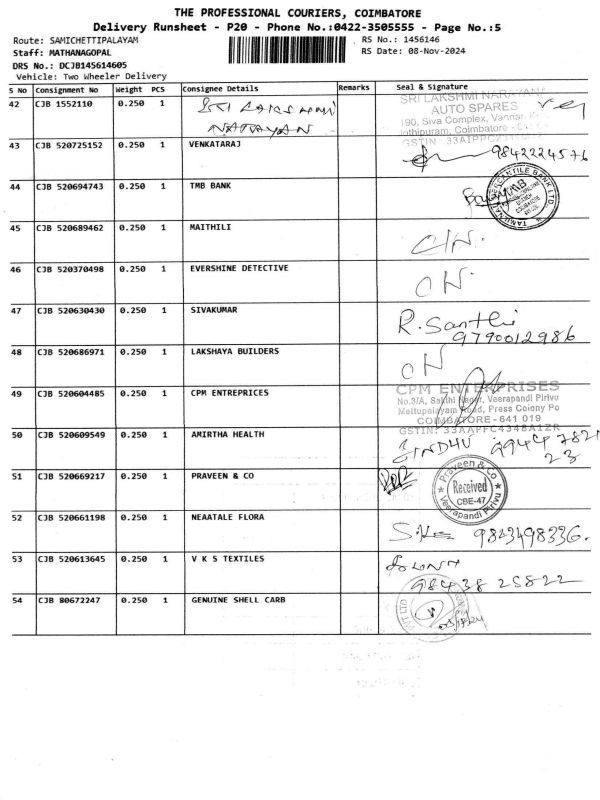 THE PROFESSIONAL COURIERS, COIMBATORE
Delivery Runsheet - P20 - Phone No.:0422-3505555 - Page No.:5
Route: SAMICHETTIPALAYAM
RS No.: 1456146
Staff: MATHANAGOPAL
RS Date: 08-Nov-2024
DRS No.: DCJB145614605
Vehicle: Two Wheeler Delivery
S No Consignment No Weight PCS Consignee Details Remarks Seal & Signature
42 CJB 1552110 0.250 1 Sri Lakshmi
Narayan
SRI LAKSHMI NARAYANA
AUTO SPARES
190, Siva Complex, Vannar
Coimbatore
43 CJB 520725152 0.250 1 VENKATARAJ 9842224576
44 CJB 520694743 0.250 1 TMB BANK
45 CJB 520689462 0.250 1 MAITHILI
46 CJB 520370498 0.250 1 EVERSHINE DETECTIVE
47 CJB 520630430 0.250 1 SIVAKUMAR R. Santhi
9790012986
48 CJB 520686971 0.250 1 LAKSHAYA BUILDERS
49 CJB 520604485 0.250 1 CPM ENTREPRICES
CPM ENTERPRISES
No.3/A, Sakthi Nagar, Veerapandi Pirivu
Mettupalayam Road, Press Colony Po
COIMBATORE - 641 019
GSTIN: 33AAPFC4348A1ZR
50 CJB 520609549 0.250 1 AMIRTHA HEALTH SINDHU 9944 7821
23
51 CJB 520669217 0.250 1 PRAVEEN & CO
Praveen & Co
Received
CBE-47
Veerapandi Pirivu
52 CJB 520661198 0.250 1 NEAATALE FLORA 9843498336.
53 CJB 520613645 0.250 1 V K S TEXTILES
98438 25822
54 CJB 80672247 0.250 1 GENUINE SHELL CARB